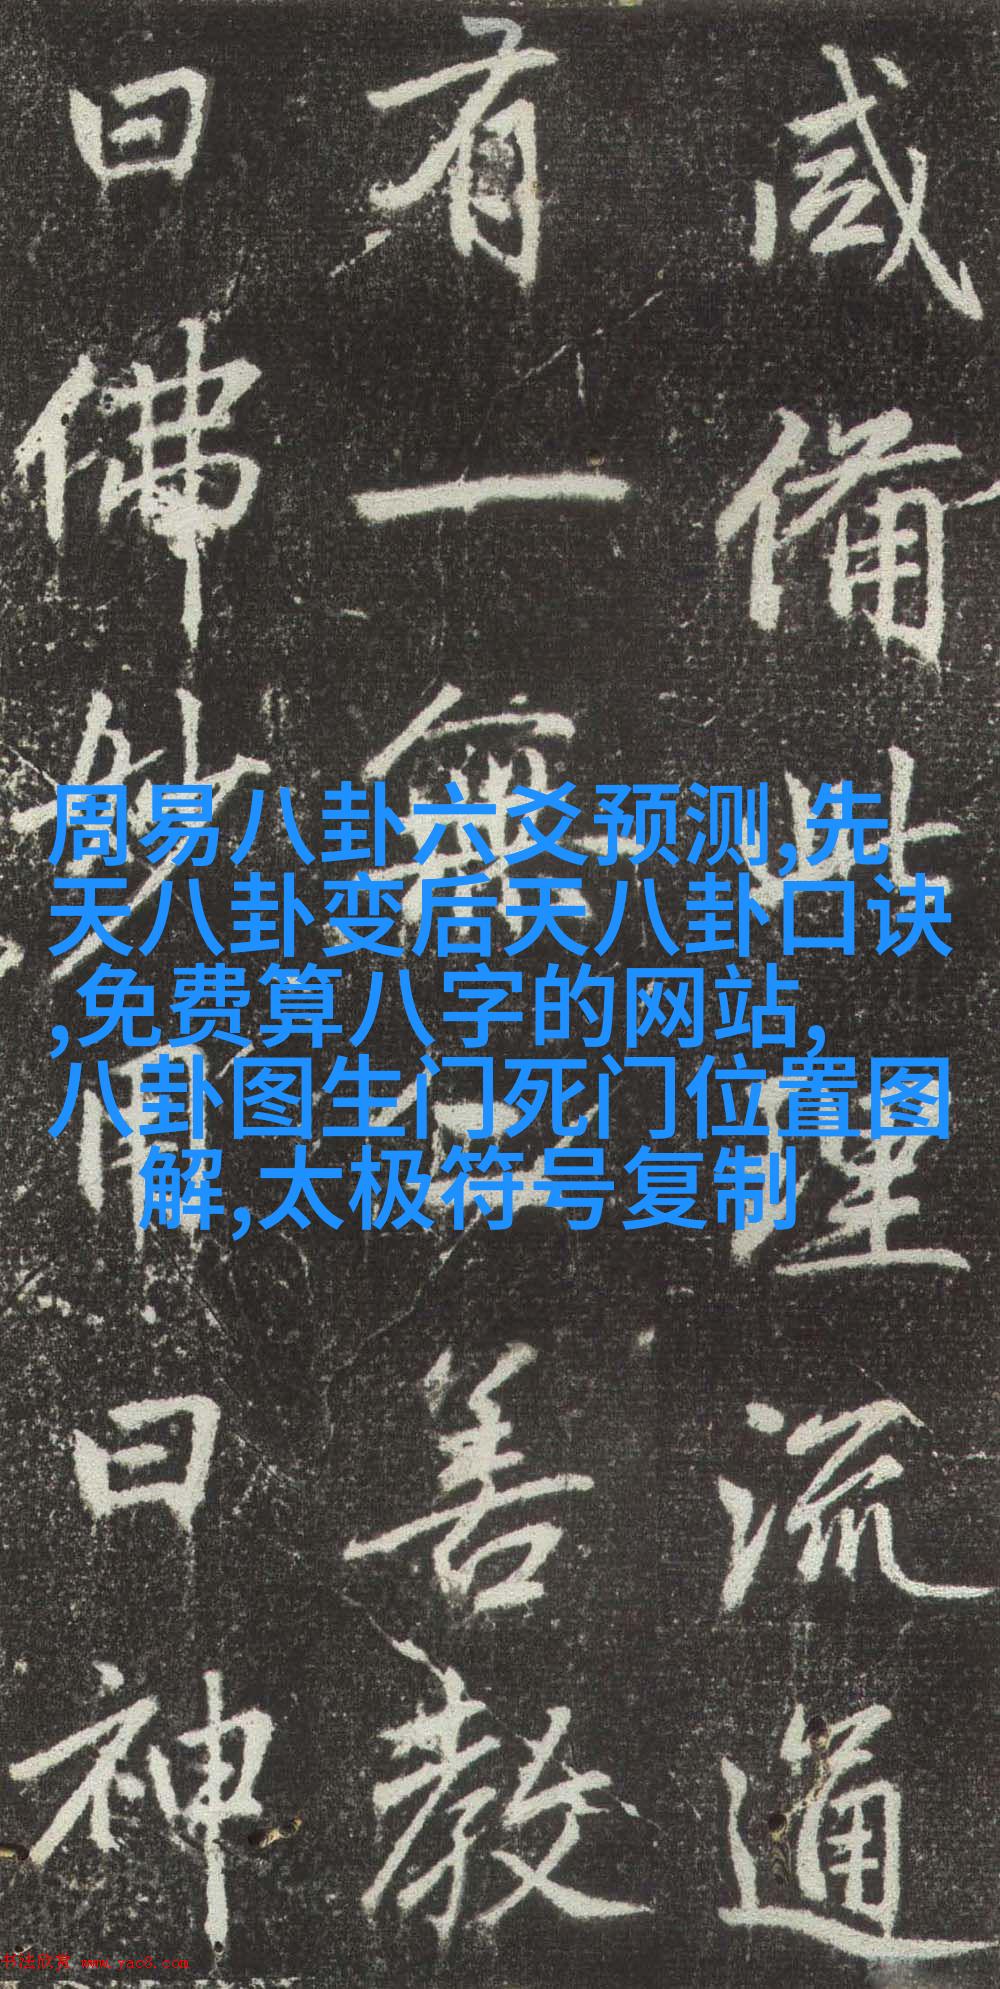 咸備此理流通
有一無善教
曰佛妙用曰神
周易八卦六爻预测,先
天八卦变后天八卦口诀
,免费算八字的网站,
八卦图生门死门位置图
解,太极符号复制
书法欣赏 www.yac8.com